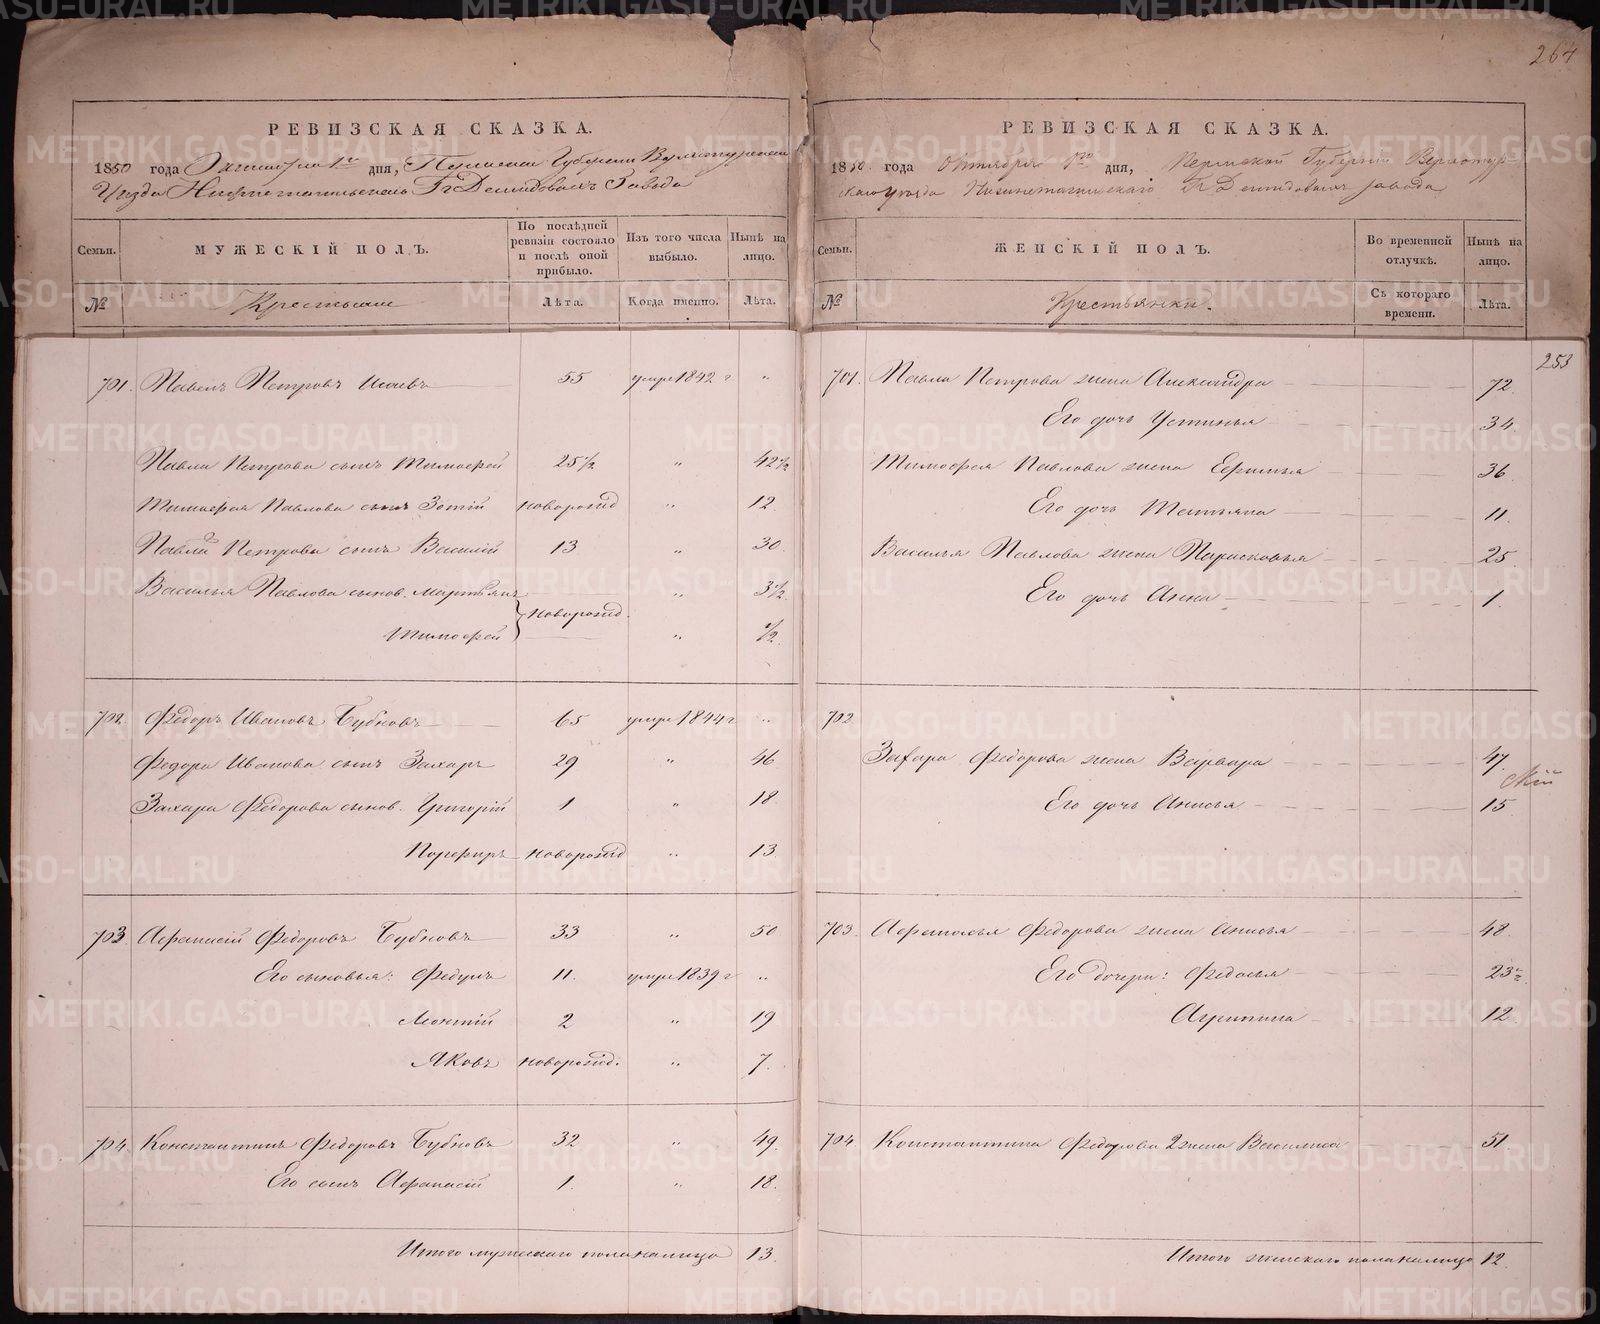 264
РЕВИЗСКАЯ СКАЗКА.
1850 года Октября 1го дня, Пермской Губернии Верхотурскаго
Уѣзда Нижнетагильскаго Гг Демидовыхъ Завода
Семьи. МУЖЕСКІЙ ПОЛЪ. По послѣдней ревизіи состояло и послѣ оной прибыло. Изъ того числа выбыло. Нынѣ на лицо.
№ Крестьяне Лѣта. Когда именно. Лѣта.
701. Павелъ Петровъ 55 умре 1842 г "
Павла Петрова сынъ Тимофей 25½ " 42½
Тимофея Павлова сынъ Зотій новорожд " 12.
Павла Петрова сынъ Василій 13 " 30.
Василья Павлова сынов. Мартьянъ новорожд. " 3½
Тимофей " ½
702. Федоръ Ивановъ Бубновъ 65 умре 1844 г "
Федора Иванова сынъ Захаръ 29 " 46
Захара Федорова сынов. Григорій 1 " 18
Порфиръ новорожд " 13
703. Афанасій Федоровъ Бубновъ 33 " 50
Его сыновья: Федулъ 11. умре 1839 г "
Леонтій 2 " 19
Яковъ новорожд. " 7.
704. Константинъ Федоровъ Бубновъ 32 " 49.
Его сынъ Афанасій 1. " 18.
Итого мужескаго пола налицо 13.
РЕВИЗСКАЯ СКАЗКА.
1850. года Октября 1го дня, Пермской Губерніи Верхотур-
скаго уѣзда Нижнетагильскаго Гг Демидовыхъ завода
Семьи. ЖЕНСКІЙ ПОЛЪ. Во временной отлучкѣ. Нынѣ на лицо.
№ Крестьянки. Съ котораго времени. Лѣта.
253
701. Павла Петрова жена Александра 72.
Его дочь Устинья 34.
Тимофея Павлова жена Ефимья 36
Его дочь Татьяна 11.
Василья Павлова жена Парасковья 25.
Его дочь Анна 1.
702
Захара Федорова жена Варвара 47.
Его дочь Анисья 15
703. Афанасья Федорова жена Анисья 48.
Его дочери: Федосья 23½
Агрипина 12.
704. Константина Федорова 2 жена Василиса 51.
Итого женскаго пола налицо 12.
METRIKI.GASO-URAL.RU